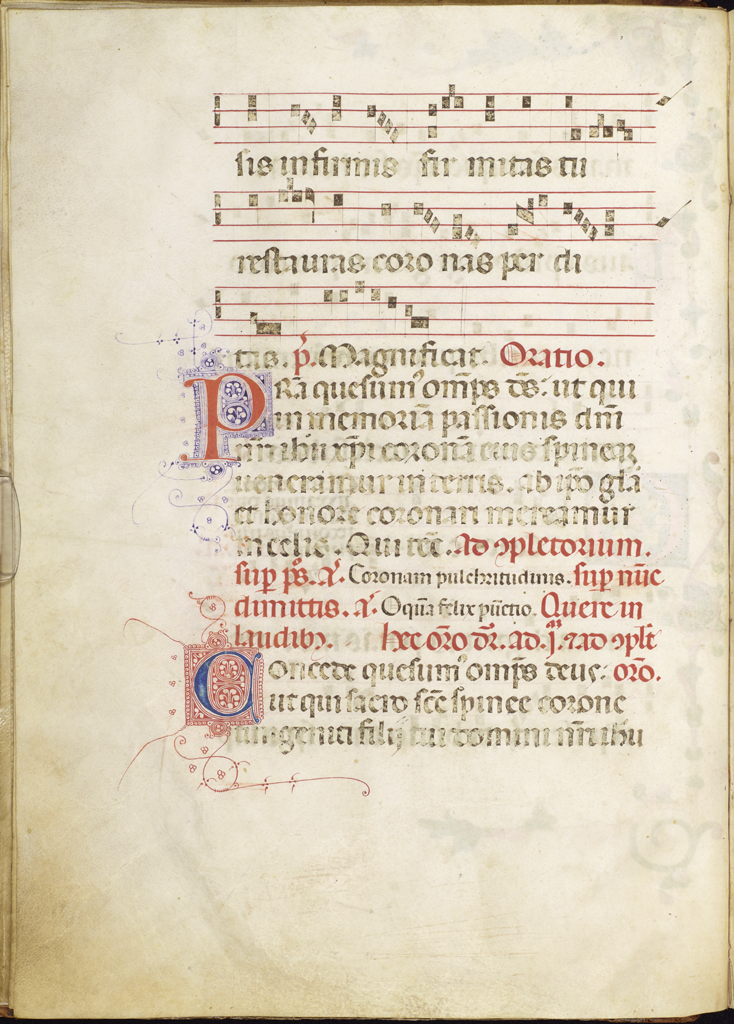 sis infirmis fir mitas tu
restauras coro nas per di
tas. p̄. Magnificat. Oratio.
PRā quesum' om̄ps d̄s: ut qui
in memoriā passionis dn̄i
nr̄i ih̄u xp̄i coronā eius spineā
ueneramur in terris. ab ip̄o gl̄a
et honore coronari mereamur
in celis. Qui tec̄. Ad ↄpletorium.
sup ps̄. a͞. Coronam pulchritudinis. sup nūc
dimittis. a͞. O qūa felix pūctio. Quere in
laudibȝ. hec or̄o dr̄. ad. j.ª ⁊ ad ↄplet̄
Concede quesum' om̄ps deus: or̄o.
ut qui sacro sc̄e spinee corone
unigeniti filij tui domini nr̄i ih̄u